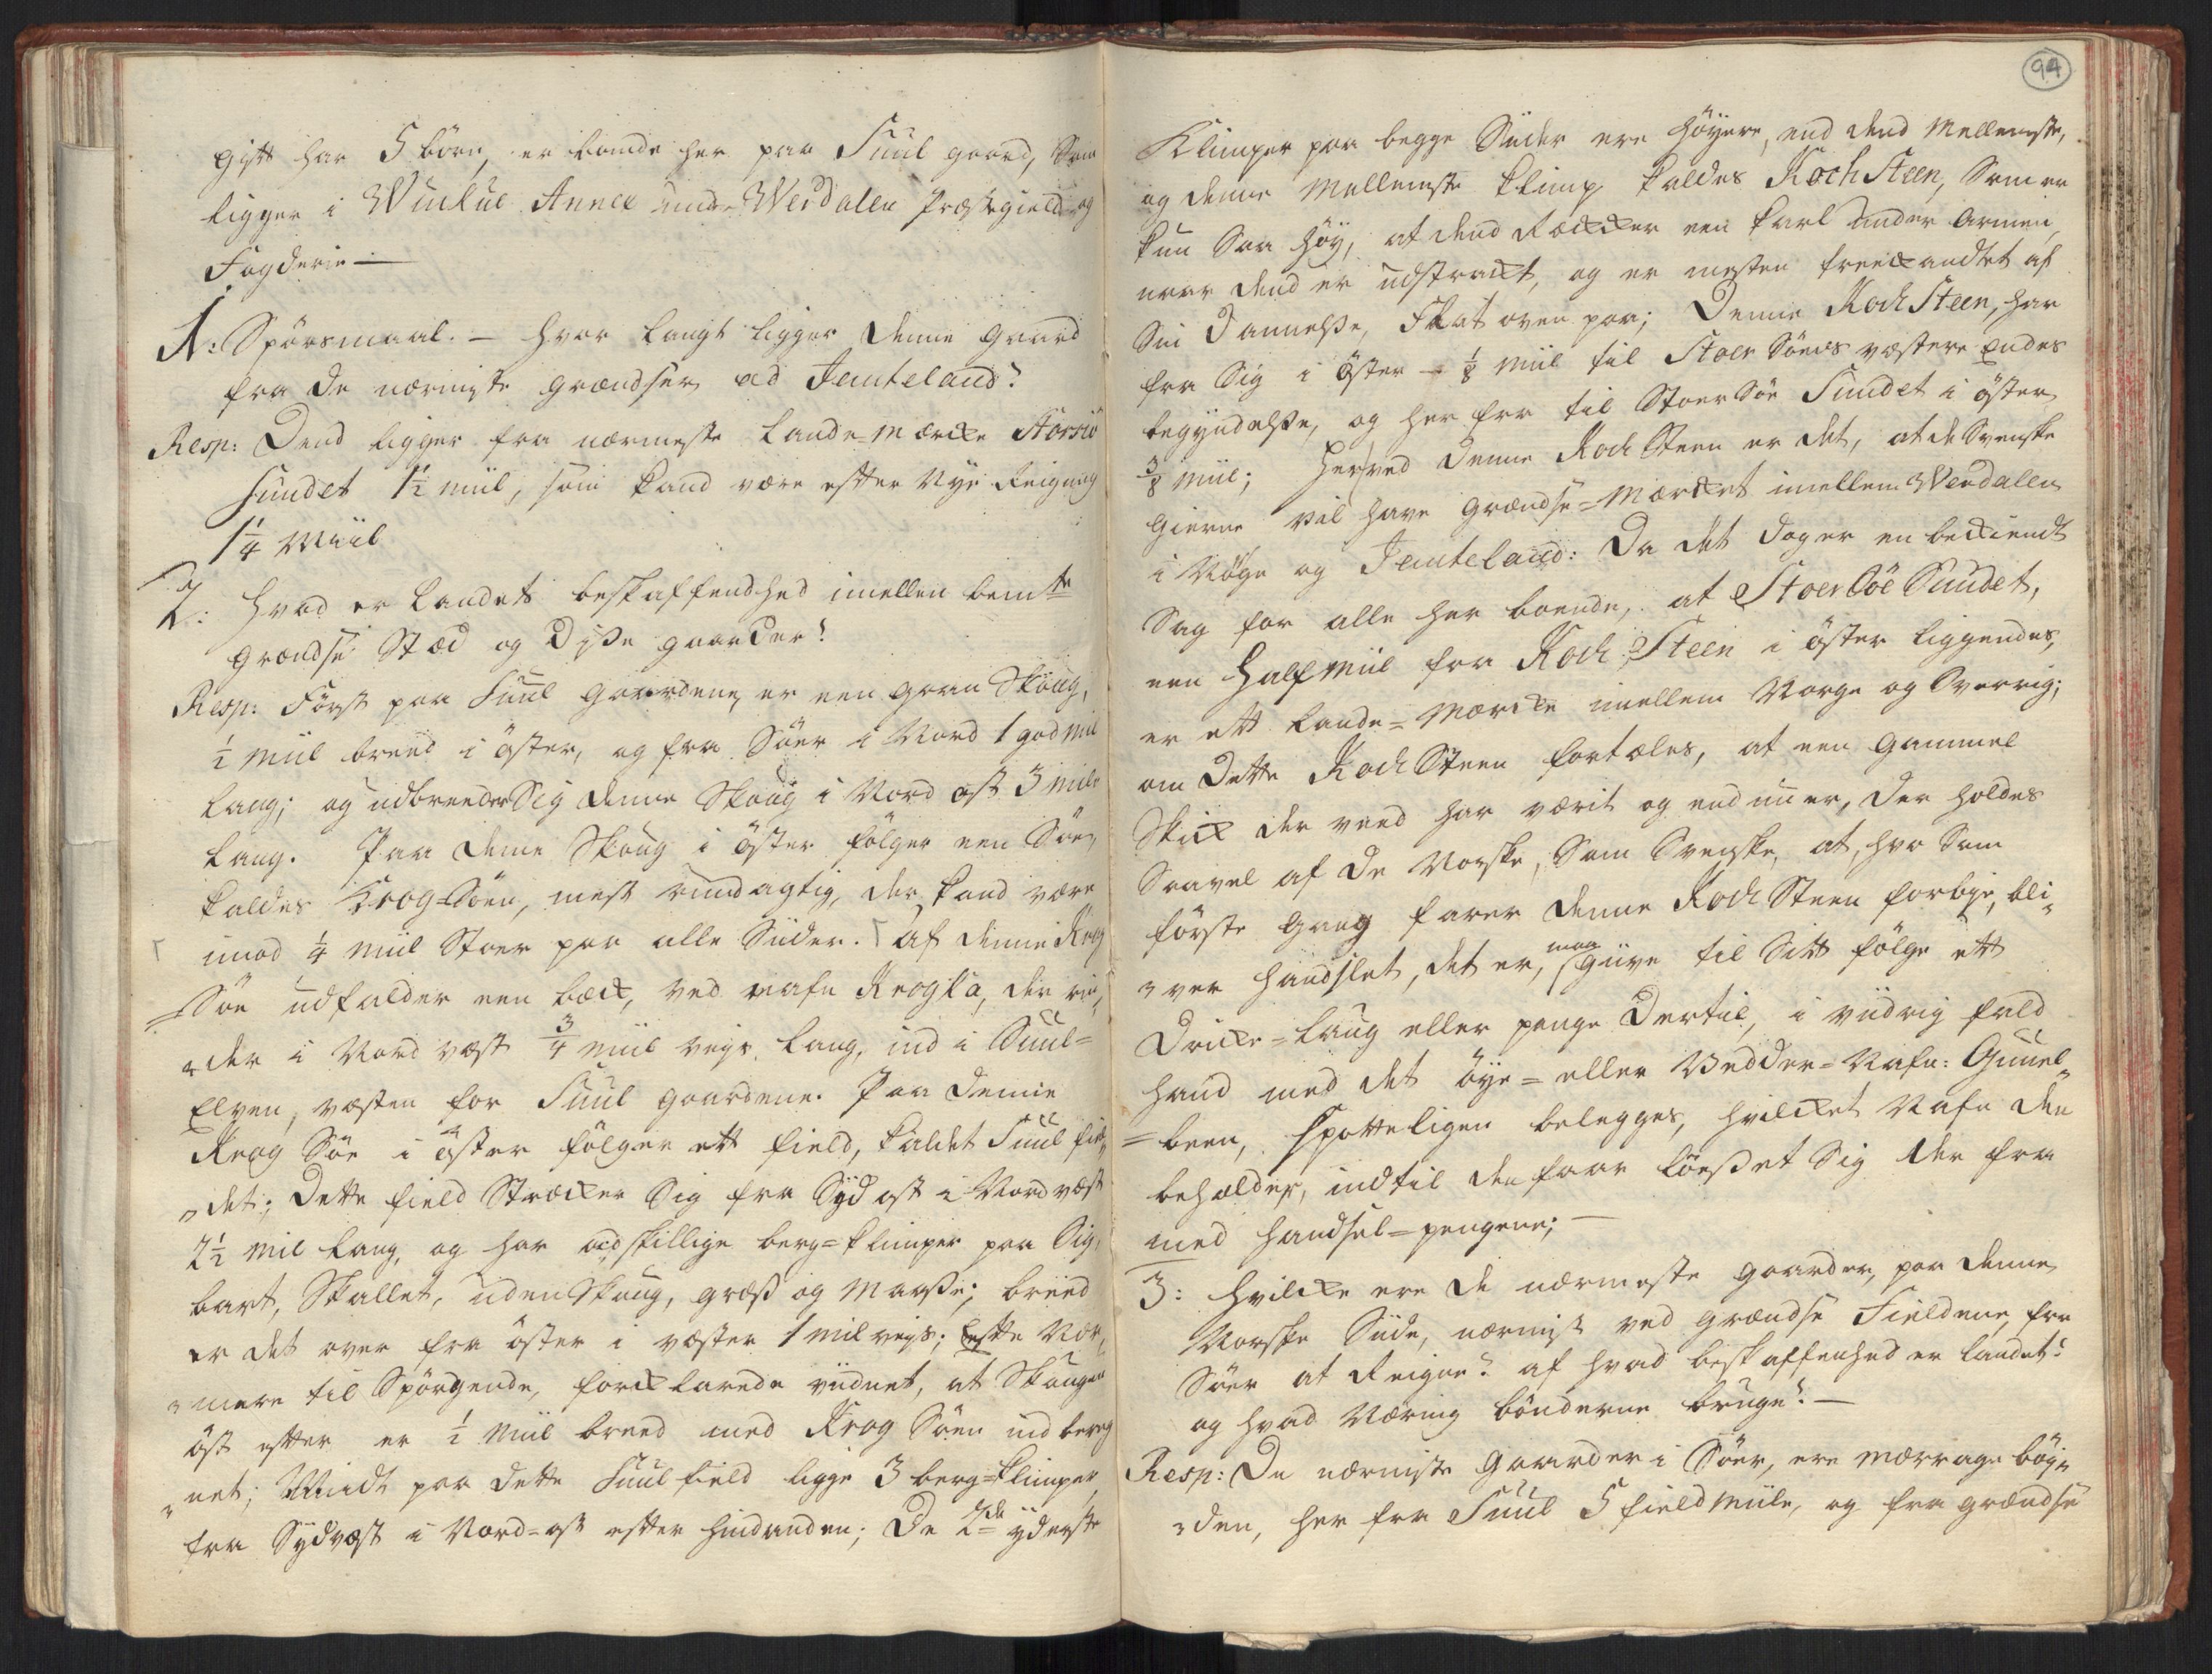 gift har 5 börn, er boende her paa Suul gaard, Som
ligger i Winkue Annex under Werdalen Præstegield og
Fogderie —
1: Spörsmaal. — hvor langt ligger denne gaard
fra de nærmiste grændser ad Jemteland?
Resp: Dend ligger fra nærmeste Lande-mærcke Störsiö
sundet 1½ miil, som kand være efter Nye Reigning
1¼ Miil
2: hvad er Landets beskaffendhed imellen bemte
grændse Stæd og Disse gaarder?
Resp: Först paa Suul gaardene er een gran Skoug,
½ miil breed i öster, og fra Söer i Nord 1 god miil
lang; og udbreeder Sig denne Skoug i Nord ost 3 miile
lang. Paa denne Skoug i öster fölger een Söe,
kaldes Krog-Söen, mest rundagtig, der kand være
imod ¼ miil Stoer paa alle Siider. Γ af denne Krog
Γ
=Söe udfalder een bæck, ved nafn Krogs aa, der rin„
„der i Nord væst ¾ miil veys lang, ind i Suul=
Elven, væsten for Suul gaardene. Paa denne
Krog Söe i öster fölger ett field, kaldet Suul fiel„
„det; Dette field Strecker Sig fra Syd ost i Nord væst
2½ mil lang, og har adskillige berg=klimper paa Sig,
bart, Skallet, uden Skoug, græs og Maasse; breed
er det over fra öster i væster 1 mil veys; Efter Nær„
„mere til Spörgende, forcklarede viidnet, at Skougen
öst efter er ½ miil breed med Krog Söen ind bereg
„net; Midt paa dette Suul field ligge 3 berg=klimper
fra Sydvæst i Nord=ost efter hinanden; De 2de yderste
94
Klimper paa begge Siider ere höyere, end dend Mellemste,
og denne Mellemste klimp kaldes Kochsteen, Som er
kun Saa höy, at dend Ræcker een karl under Armen,
naar dend er udstrackt, og er mesten treekandtet af
Sin Dannelsse, Flat oven paa; Denne Koch Steen, har
fra Sig i Öster — ⅛ miil til Stoer Söens væstere Endes
begyndelsse, og her fra til Stoer Söe Sundet i öster
⅜ miil; Herved denne Koch Steen er det, at de Svenske
gierne vil have grændse=Mærcket imellem Werdalen
i Norge og Jemteland: Da det dog er en beckiendt
Sag for alle her boende, at Stoer Söe Sundet,
een Half miil fra Koch Steen i öster liggendes,
er ett Lande=Mærcke imellem Norge og Sverrig;
om Dette Koch Steen fortæles, at een gammel
Skick der veed har værit og end nu er, der holdes
Saavel af de Norske, Som Svenske, at, hvo Som
förste gang farer denne Koch Steen forbye, bli„
„ver handslet, det er, maa give til Sitt fölge ett
Dricke=laug eller penge Dertil, i viidrig fald
hand med det öye= eller Vedder=Nafn: Gunel„
=been, spotteligen belegges, hvilcket Nafn den
beholder, indtil den faar löesset Sig der fra
med handsel=pengene; —
3: hvilcke ere de nærmeste gaarder, paa denne
Norske Siide, nærmist ved grændse Fieldene, fra
Söer at Reigne? af hvad beskaffenhed er Landet?
og hvad Næring bönderne bruge? —
Resp: De nærmiste gaarder i Söer, ere Mærrage böy„
„den, her fra Suul 5 field Miile, og fra grændse